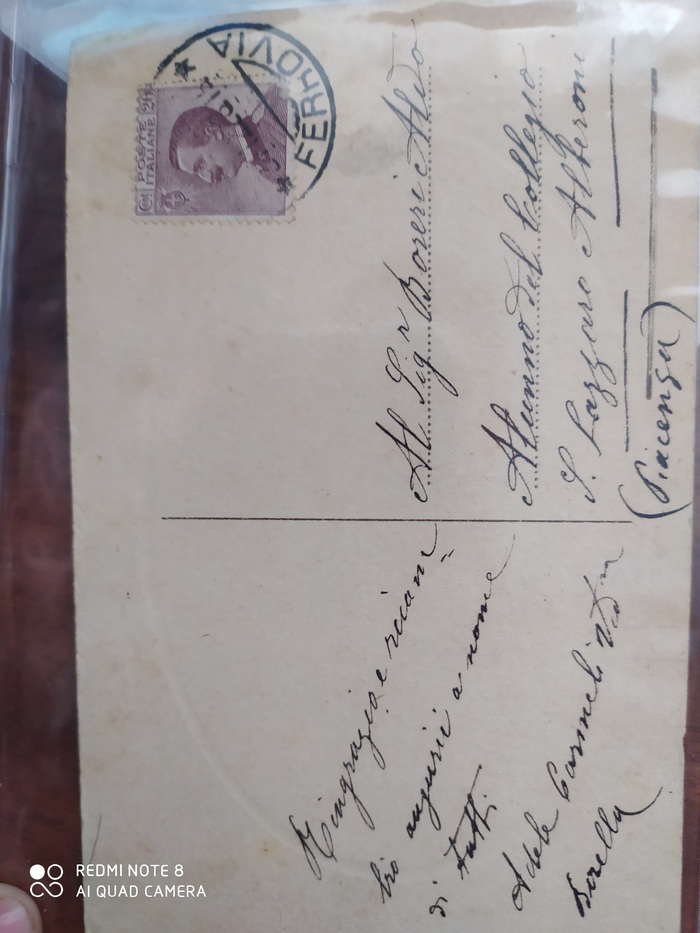 Ringrazio e ricam=
bio augurii a nome
di tutti
Adele Carmeli
Sorella
POSTE ITALIANE
FERROVIA
Al Sigr Boreri Aldo
Alunno del Collegio
S. Lazzaro Alberoni
(Piacenza)
REDMI NOTE 8
AI QUAD CAMERA